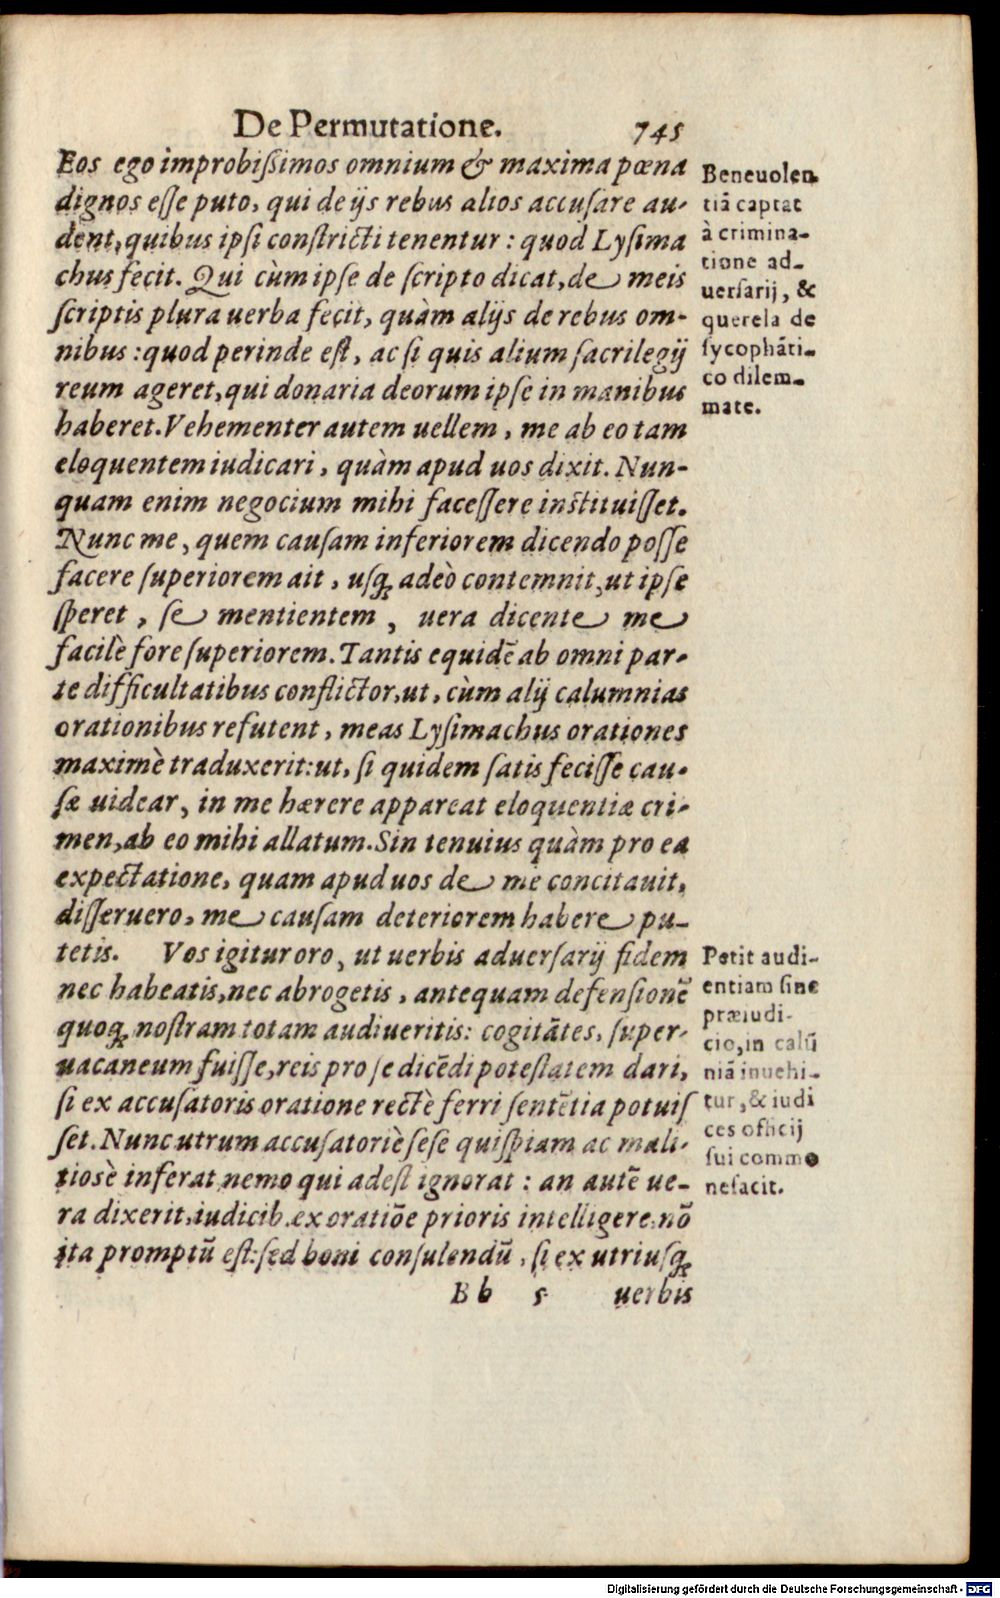 De Permutatione. 745
Eos ego improbißimos omnium & maxima pœna
dignos esse puto, qui de ijs rebus alios accusare au-
dent, quibus ipsi constricti tenentur: quod Lysima
chus fecit. Qui cùm ipse de scripto dicat, de meis
scriptis plura uerba fecit, quàm alijs de rebus om-
nibus: quod perinde est, ac si quis alium sacrilegij
reum ageret, qui donaria deorum ipse in manibus
haberet. Vehementer autem uellem, me ab eo tam
eloquentem iudicari, quàm apud uos dixit. Nun-
quam enim negocium mihi facessere instituisset.
Nunc me, quem causam inferiorem dicendo posse
facere superiorem ait, usq; adeò contemnit, ut ipse
speret, se mentientem, uera dicente me
facilè fore superiorem. Tantis equidē ab omni par-
te difficultatibus conflictor, ut, cùm alij calumnias
orationibus refutent, meas Lysimachus orationes
maximè traduxerit: ut, si quidem satis fecisse cau-
sæ uidear, in me hærere appareat eloquentiæ cri-
men, ab eo mihi allatum. Sin tenuius quàm pro ea
expectatione, quam apud uos de me concitauit,
disseruero, me causam deteriorem habere pu-
tetis. Vos igitur oro, ut uerbis aduersarij fidem
nec habeatis, nec abrogetis, antequam defensionē
quoq; nostram totam audiueritis: cogitātes, super-
uacaneum fuisse, reis pro se dicēdi potestatem dari,
si ex accusatoris oratione rectè ferri sentētia potuis
set. Nunc utrum accusatoriè sese quispiam ac mali-
tiosè inferat nemo qui adest ignorat: an autē ue-
ra dixerit, iudicib. ex oratiōe prioris intelligere, nō
ita promptū est: sed boni consulendū, si ex utriusq;
B b 5 uerbis
Beneuolen
tiā captat
à crimina-
tione ad-
uersarij, &
querela de
sycophāti-
co dilem-
mate.
Petit audi-
entiam sine
præiudi-
cio, in calū
niā inuehi-
tur, & iudi
ces officij
sui commo
nefacit.
Digitalisierung gefördert durch die Deutsche Forschungsgemeinschaft - DFG